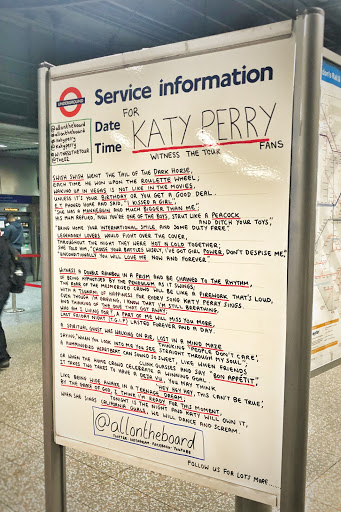 UNDERGROUND
Service information
@allontheboard
@katyperry
#KatyPerry
#WITNESSTHETOUR
@THEO2
Date
Time
FOR
KATY PERRY
WITNESS THE TOUR FANS
SWISH SWISH WENT THE TAIL OF THE DARK HORSE,
EACH TIME HE WON UPON THE ROULETTE WHEEL;
WAKING UP IN VEGAS IS NOT LIKE IN THE MOVIES,
UNLESS IT'S YOUR BIRTHDAY OR YOU GET A GOOD DEAL.
E.T PHONED HOME AND SAID, "I KISSED A GIRL,
"SHE WAS A MANNEQUIN AND MUCH BIGGER THAN ME";
HIS MAM REPLIED, "NOW YOU'RE ONE OF THE BOYS, STRUT LIKE A PEACOCK
AND DITCH YOUR TOYS",
"BRING HOME YOUR INTERNATIONAL SMILE AND SOME DUTY FREE".
LEGENDARY LOVERS WOULD FIGHT OVER THE COVER,
THROUGHOUT THE NIGHT THEY WERE HOT N COLD TOGETHER;
SHE TOLD HIM, "CHOOSE YOUR BATTLES WISELY, I'VE GOT GIRL POWER, DON'T DESPISE ME",
"UNCONDITIONALLY YOU WILL LOVE ME NOW AND FOREVER".
WITNESS A DOUBLE RAINBOW IN A PRISM AND BE CHAINED TO THE RHYTHM,
OF BEING HYPNOTISED BY THE PENDULUM AS IT SWINGS;
THE ROAR OF THE MESMERISED CROWD WILL BE LIKE A FIREWORK THAT'S LOUD,
WITH A TSUNAMI OF HAPPINESS FOR EVERY SONG KATY PERRY SINGS.
EVEN THOUGH I'M GRIEVING, I KNOW THAT I'M STILL BREATHING,
AND THINKING OF THE ONE THAT GOT AWAY;
WHO AM I LIVING FOR? A PART OF ME WILL MISS YOU MORE,
LAST FRIDAY NIGHT (T.G.I.F) LASTED FOREVER AND A DAY.
A SPIRITUAL GHOST WAS WALKING ON AIR, LOST IN A MIND MAZE
THINKING "PEOPLE DON'T CARE",
SAYING, "WHEN YOU LOOK INTO ME YOU SEE STRAIGHT THROUGH MY SOUL";
A HUMMINGBIRD HEARTBEAT CAN SOUND SO SWEET, LIKE WHEN FRIENDS
CLINK GLASSES AND SAY "BON APPÉTIT",
OR WHEN THE HOME CROWD CELEBRATE A WINNING GOAL.
IT TAKES TWO TEARS TO HAVE A DEJA VU, YOU MAY THINK
"HEY HEY HEY, THIS CAN'T BE TRUE",
LIKE BEING WIDE AWAKE IN A TEENAGE DREAM;
BY THE GRACE OF GOD, I THINK I'M READY FOR THIS MOMENT,
TONIGHT IS THE NIGHT AND KATY WILL OWN IT,
WHEN SHE SINGS CALIFORNIA GURLS, WE WILL DANCE AND SCREAM.
@allontheboard
TWITTER INSTAGRAM FACEBOOK YOUTUBE
FOLLOW US FOR LOTS MORE....